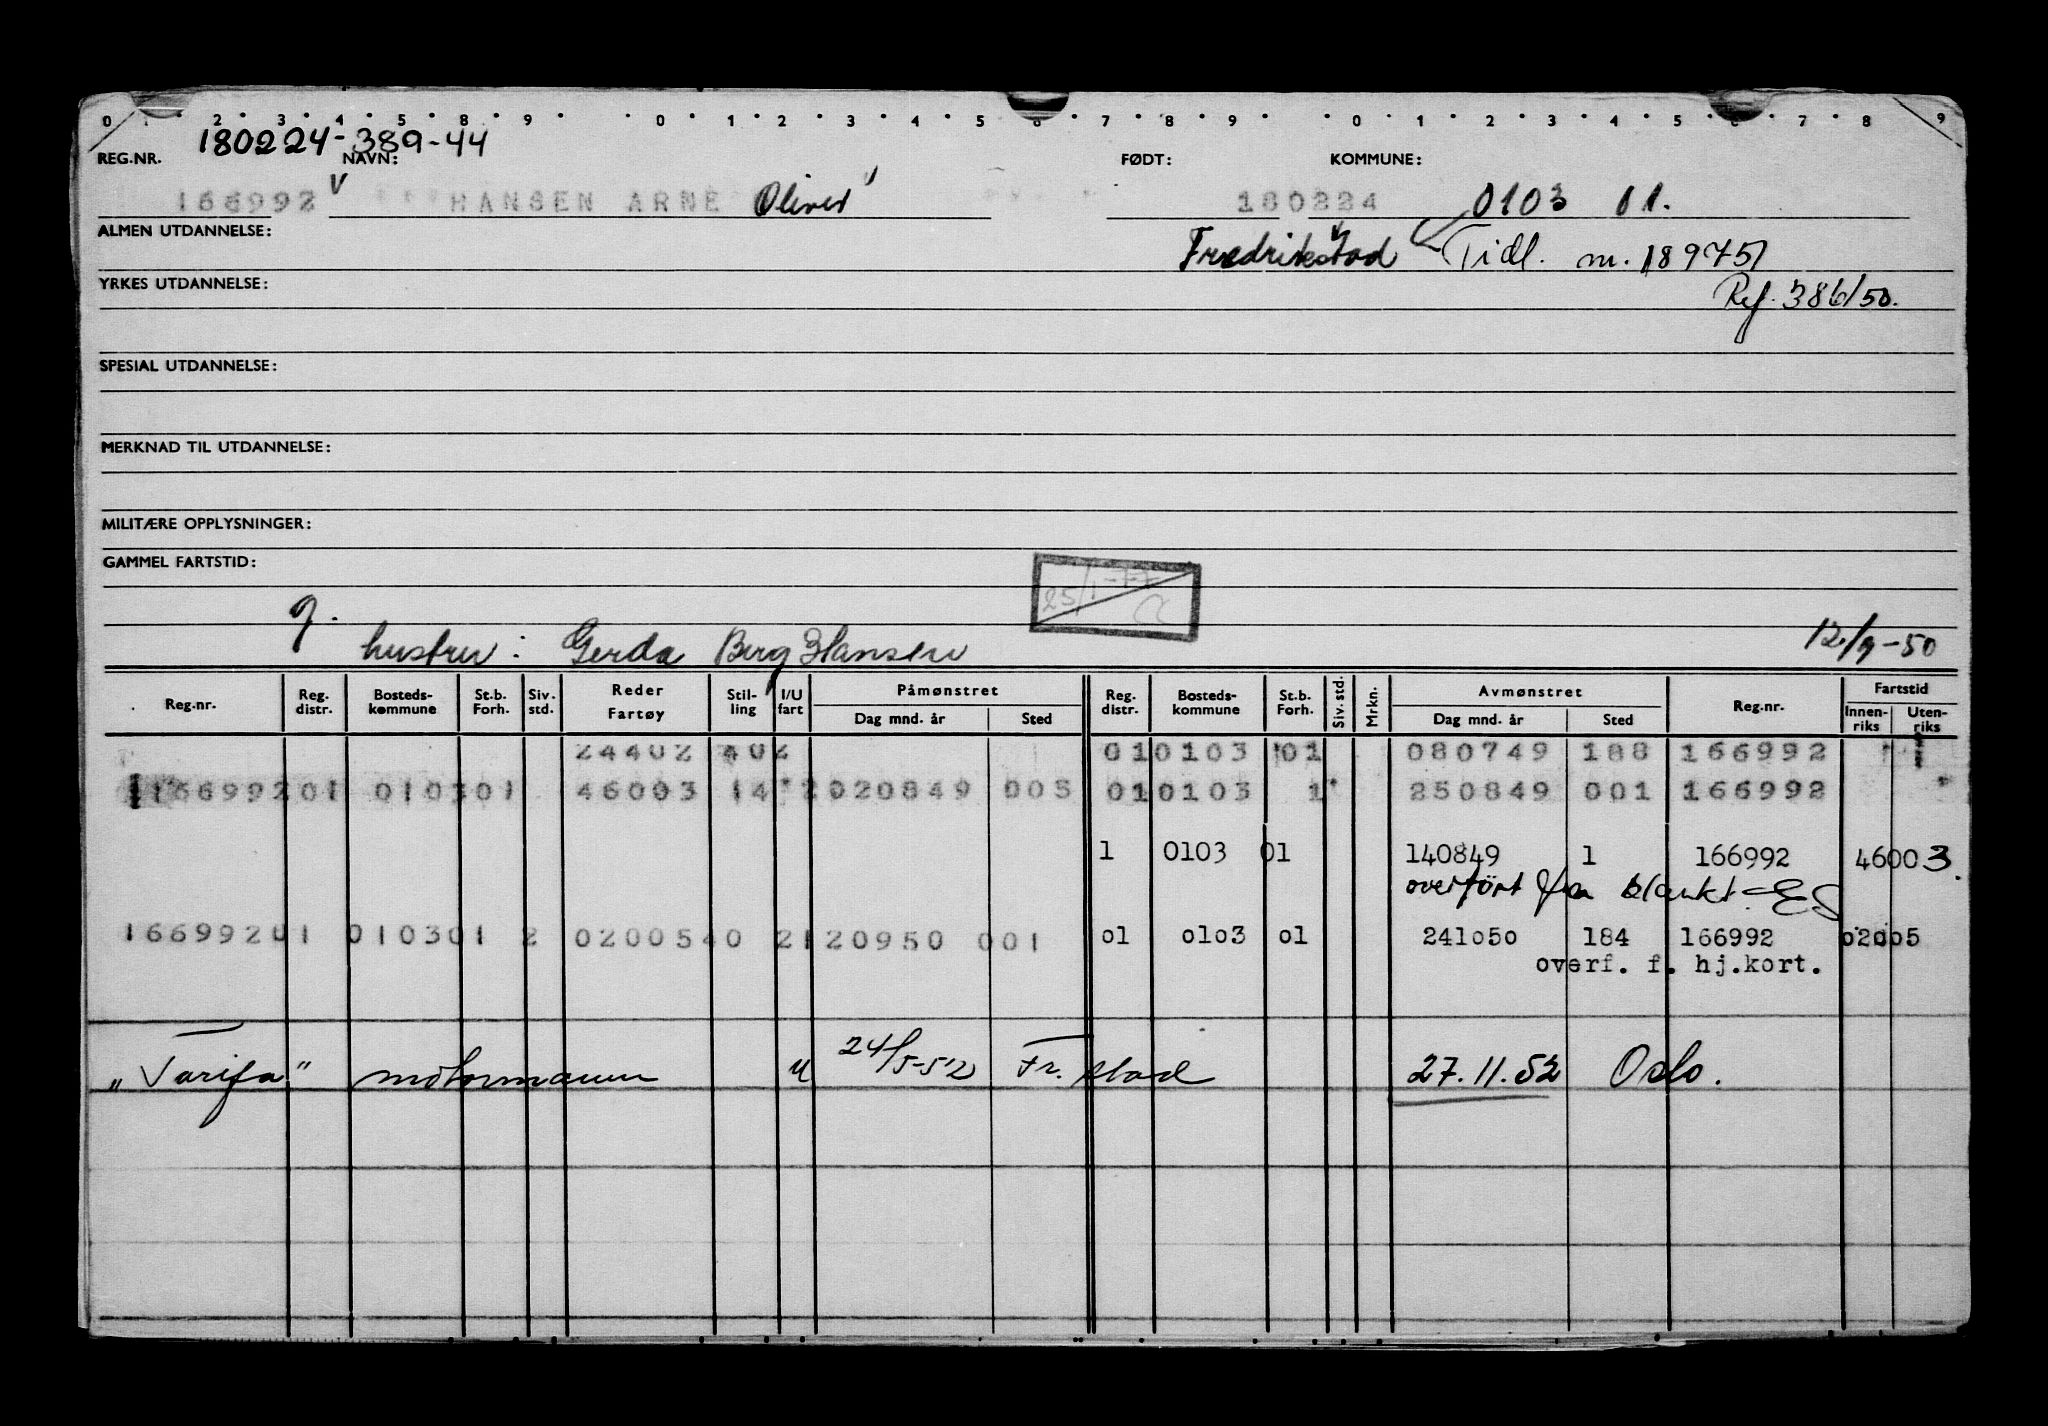 0 1 2 3 4 5 8 9 0 1 2 3 4 5 6 7 8 9 0 1 2 3 4 5 6 7 8 9
180224-389-44
REG.NR. NAVN: FØDT: KOMMUNE:
166992 HANSEN ARNE Oliver 180224 0103 01.
ALMEN UTDANNELSE: Fredrikstad Tidl. nr. 189751
YRKES UTDANNELSE: Ref. 386/50.
SPESIAL UTDANNELSE:
MERKNAD TIL UTDANNELSE:
MILITÆRE OPPLYSNINGER:
GAMMEL FARTSTID:
25/1-77
g.
hustru: Gerda Berg Hansen 12/9-50
Reg.nr. Reg. distr. Bosteds-kommune St.b. Forh. Siv. std. Reder Fartøy Stil-ling I/U fart Påmønstret Dag mnd. år Sted Reg. distr. Bosteds-kommune St.b. Forh. Siv. std. Mrkn. Avmønstret Dag mnd. år Sted Reg.nr. Fartstid Innen-riks Uten-riks
24402 402 01 0103 01 080749 188 166992
166992 01 0103 01 46003 14 2 020849 005 01 0103 1 250849 001 166992
1 0103 01 140849 1 166992 46003.
overført fra blankt
166992 01 0103 01 2 02005 40 2 120950 001 01 0103 01 241050 184 166992 02005
overf. f. hj.kort.
"Tarifa" motormann u 24/5-52 Fr.stad 27.11.52 Oslo.